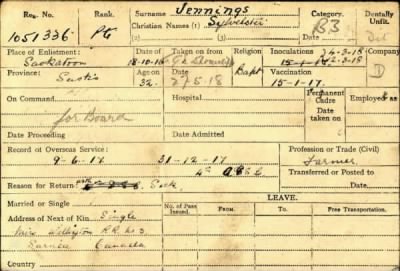 Reg. No. Rank. Surname Jennings Category. Dentally Unfit.
1051336 Pte Christian Names (1) Sylvester B3
(2) (3)
Place of Enlistment: Date of Taken on from Religion Inoculations Company
Saskatoon 18-10-16 Bapt D
Province: Age on Vaccination
32. 27-5-18 15-1-17.
On Command Hospital, Permanent Cadre Taken on Employed as
for Board date
Date Proceeding Date Admitted
Record of Overseas Service: Profession or Trade (Civil)
9-6-17 31-12-17 Farmer.
Transferred or Posted to
Reason for Return Sick
Married or Single LEAVE.
Address of Next of Kin Single No. of Pass Issued. From To Free Transportation.
R.R. No 3
Sarnia Canada